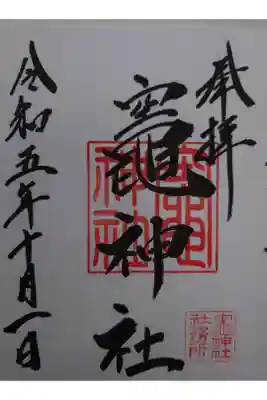 奉拝
竈神社
令和五年十月一日
竈神社
社務所